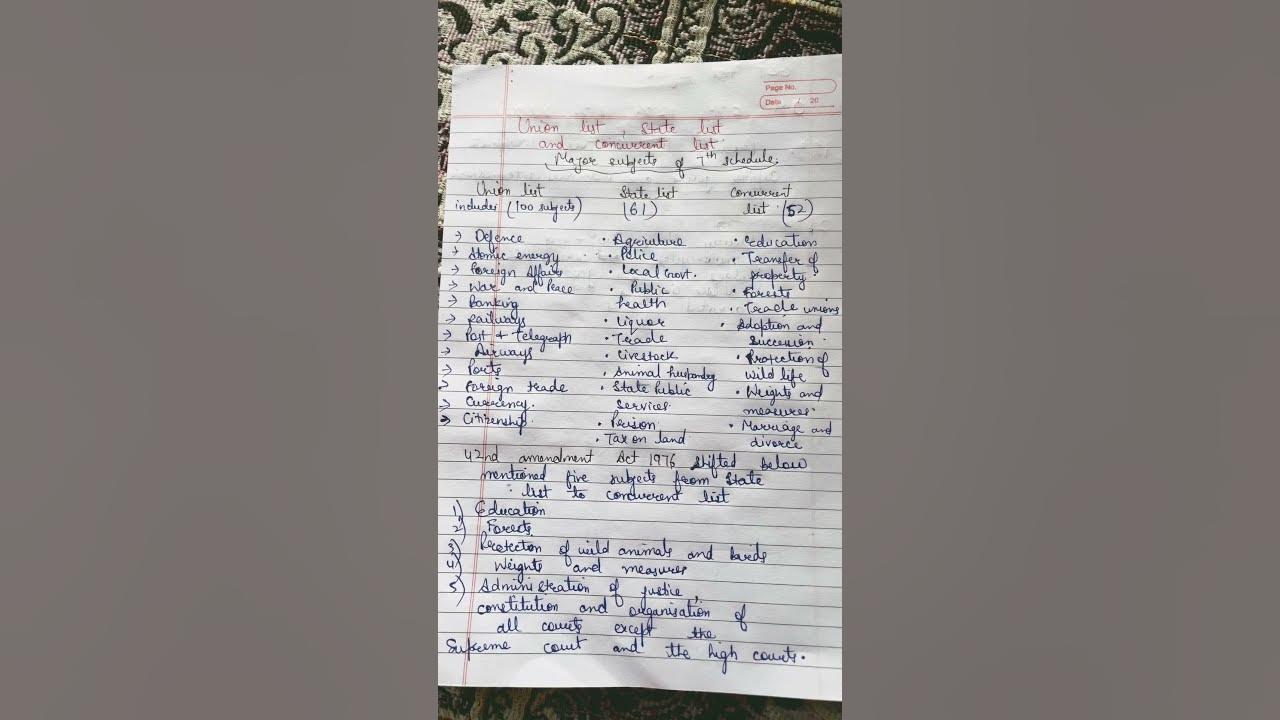 Page No.
Date / 20
Union list, State list
and concurrent list
Major subjects of 7th schedule.
Union list State list Concurrent
includes (100 subjects) (61) list (52)
→ Defence • Agriculture • Education
→ Atomic energy • Police • Transfer of
→ Foreign Affairs • Local Govt. property
→ War and Peace • Public • Forests
→ Banking health • Trade unions
→ Railways • Liquor • Adoption and
→ Post + Telegraph • Trade succession
→ Airways • Livestock • Protection of
→ Ports • Animal husbandry wild life
→ Foreign trade • State Public • Weights and
→ Currency. Services. measures.
→ Citizenship. • Prison • Marriage and
• Tax on land divorce
42nd amendment Act 1976 shifted below
mentioned five subjects from State
list to concurrent list
1) Education
2) Forests
3) Protection of wild animals and birds
4) Weights and measures
5) Administration of justice,
constitution and organisation of
all courts except the
Supreme court and the high courts.